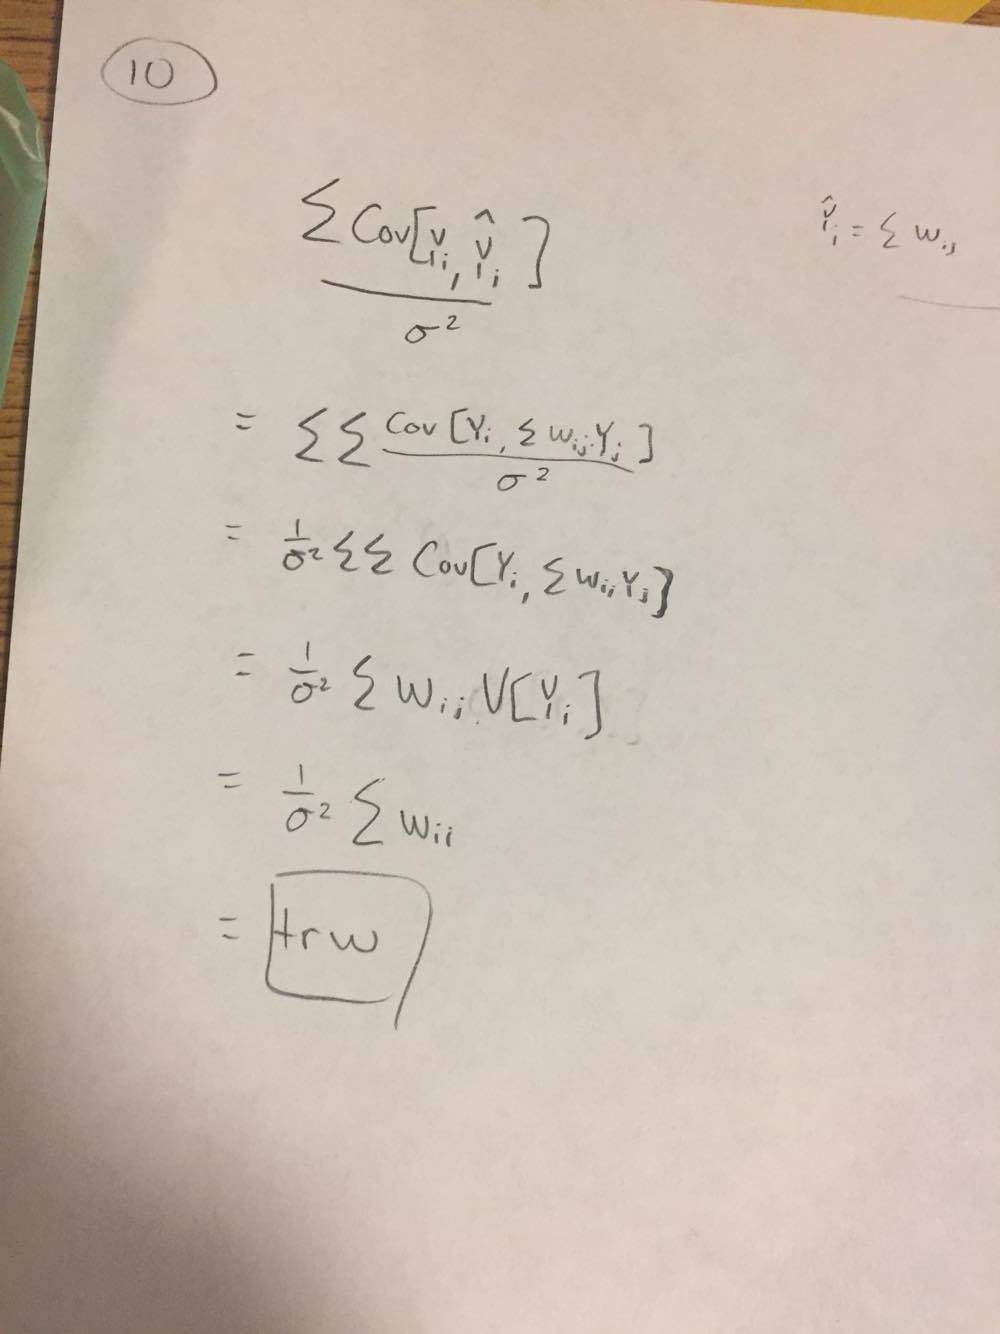 10
Σ Cov[Yi, Ŷi]
σ²
Ŷi = Σ wij
= ΣΣ Cov[Yi, Σ wij Yj]
σ²
= 1/σ² ΣΣ Cov[Yi, Σ wij Yj]
= 1/σ² Σ wij V[Yi]
= 1/σ² Σ wii
= tr w